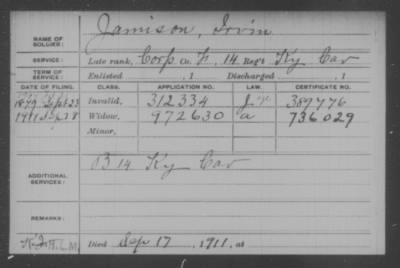 NAME OF SOLDIER: Jamison, Irvin
SERVICE: Late rank, Corp Co. F, 14 Reg't Ky Cav
TERM OF SERVICE: Enlisted , 1 Discharged , 1
DATE OF FILING. CLASS. APPLICATION NO. LAW. CERTIFICATE NO.
1879 Sept 23 Invalid, 312334 389776
1911 Sep 28 Widow, 972630 a 736029
Minor,
ADDITIONAL SERVICES: B 14 Ky Cav
REMARKS:
Died Sep 17, 1911, at